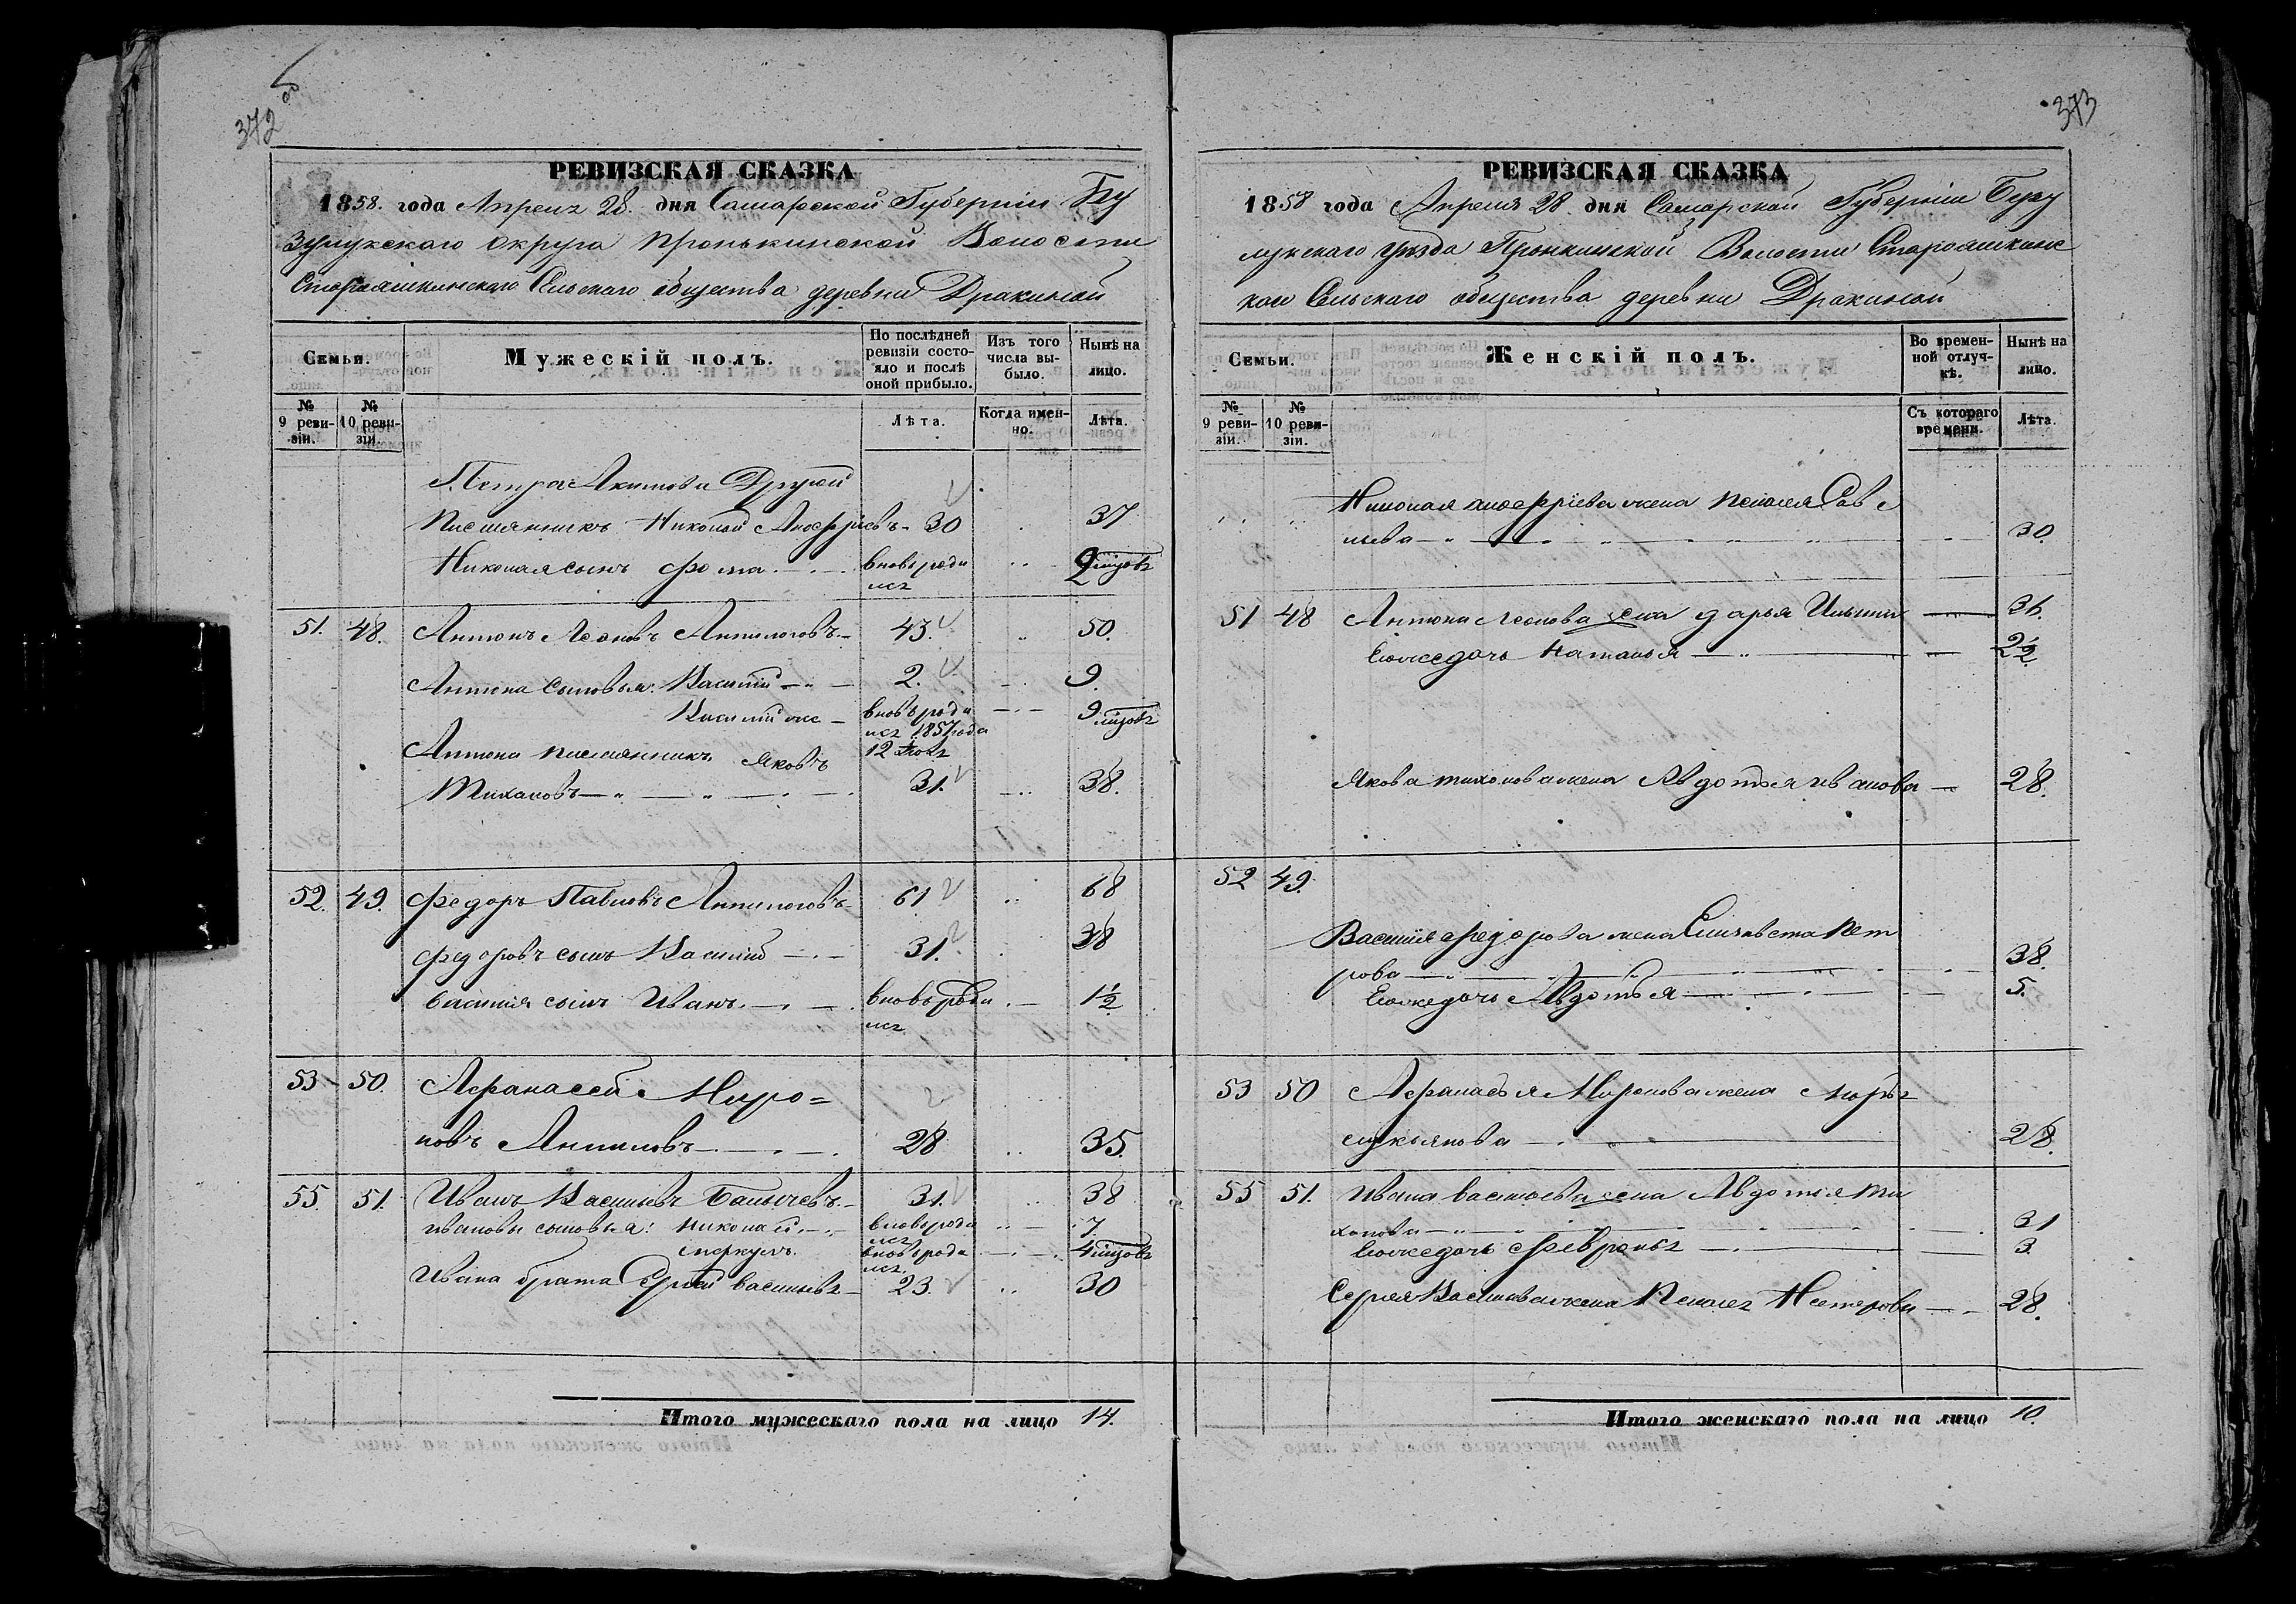 372
РЕВИЗСКАЯ СКАЗКА
1858. года Апреля 28. дня Самарской Губерніи Бу
зулукскаго округа Пронькинской Волости
Старояшкинскаго Сельскаго общества деревни Дракиной
Семьи.
Мужескій полъ.
По послѣдней ревизіи состояло и послѣ оной прибыло.
Изъ того числа выбыло.
Нынѣ на лицо.
№ 9 ревизіи.
№ 10 ревизіи.
Лѣта.
Когда именно.
Лѣта.
Петра Акимова Другой
Племянникъ Николай Андреевъ 30 37
Николая сынъ Фома вновь роди 9 мцовъ
лся
51. 48. Антонъ Леоновъ 43. 50.
Антона сыновья: Василій 2. 9.
Василій же вновь роди 9 мцовъ
лся 1857 года
Антона племянникъ Яковъ 12
Тихановъ 31. 38.
52. 49. Федоръ Павловъ Анпилоговъ 61 68
Федоровъ сынъ Василій 31. 38
Василия сынъ Иванъ вновь роди 1½
лся
53 50. Афанасей Миро=
новъ 28 35.
55. 51. Иванъ Васильевъ 31. 38
Ивановы сыновья: Николай вновь роди 7.
лся
Меркулъ вновь роди 4 мцовъ
лся
Ивана брата Сергей Васильевъ 23. 30
Итого мужескаго пола на лицо 14.
373
РЕВИЗСКАЯ СКАЗКА
1858 года Апреля 28 дня Самарской Губерніи Бузу
лукскаго уѣзда Пронкинской Волости Старояшкинс
каго Сельскаго общества деревни Дракиной
Семьи.
Женскій полъ.
Во временной отлучкѣ.
Нынѣ на лицо.
№ 9 ревизіи.
№ 10 ревизіи.
Съ котораго времени.
Лѣта.
Николая жена Пелагея Саве
льева 30.
51 48 Антона Леонова жена Дарья Ильина 36.
Ево же дочь Наталья 2½
Якова Тихонова жена Авдотья Иванова 28.
52 49.
Василия Федорова жена Елизавета Пет
рова 38.
Ево же дочь Авдотья 5.
53 50 Афанасья Миронова жена
Лукьянова 28.
55 51. Ивана Васильева жена Авдотья Ти
ханова 31
Ево же дочь Февронья 3.
Сергея Васильева жена Пелагея Нестерова 28.
Итого женскаго пола на лицо 10.